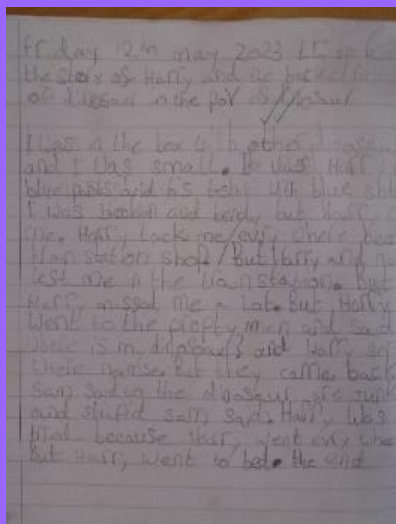 Friday 12th may 2023 LI to
the story of Harry and the bucket
of dinosaur in the pov of dinosaur
I was in the box with other
and I was small. Harry
blue pants and his tshirt with blue
I was brocken and bendy but Harry
me. Harry tack me every where
train station shop but Harry and
lest me in the train station. But
Harry missed me a lot. But Harry
Went to the propty man and said
there is my dinosaurs and Harry
there namse. But they came back
sam said the dinosaur are
and stupid sam said. Harry was
tired because Harry went evry
but Harry went to bed. the end